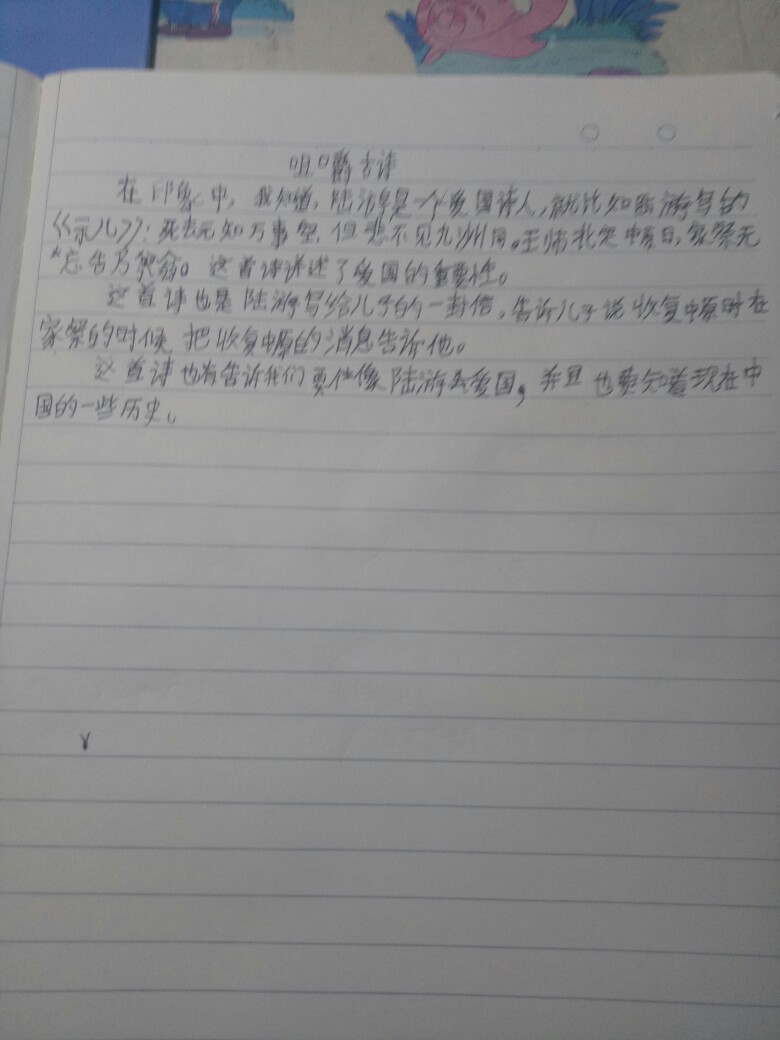 咀嚼古诗
在印象中,我知道,陆游是一个爱国诗人,就比如陆游写的
《示儿》:死去元知万事空,但悲不见九洲同。王师北定中原日,家祭无
忘告乃翁。这首诗详述了爱国的重要性。
这首诗也是陆游写给儿子的一封信,告诉儿子说收复中原时在
家祭的时候把收复中原的消息告诉他。
这首诗也有告诉我们要像陆游爱国,并且也要知道现在中
国的一些历史。